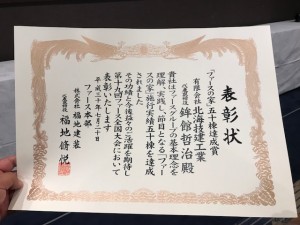 表彰状
「ファースの家」五十棟達成賞
有限会社 北海技建工業
代表取締役 鉾館哲治 殿
貴社はファースグループの基本理念を
理解、実践し、節目となる「ファー
スの家」施行実績五十棟を達成
されました
その功績と今後益々の活躍を期待し
第十九回ファース全国大会において
表彰いたします
平成三十年七月二十日
ファース本部
株式会社 福地建装
代表取締役 福地脩悦